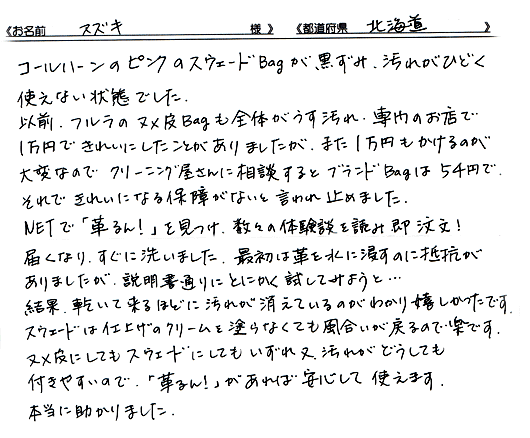 《お名前 スズキ 様》 《都道府県 北海道 》
コールハーンのピンクのスウェードBagが黒ずみ、汚れがひどく
使えない状態でした。
以前、フルラのヌメ皮Bagも全体がうす汚れ、専門のお店で
1万円できれいにしたことがありましたが、また1万円もかけるのが
大変なので クリーニング屋さんに相談すると ブランドBagは5千円で、
それで きれいになる保障がないと言われ止めました。
NETで「革るん!」を見つけ、数々の体験談を読み即注文!
届くなり、すぐに洗いました。最初は革を水に浸すのに抵抗が
ありましたが、説明書通りにとにかく試してみようと…
結果、乾いて来るほどに汚れが消えているのがわかり嬉しかったです。
スウェードは仕上げのクリームを塗らなくても風合いが戻るので楽です。
ヌメ皮にしてもスウェードにしてもいずれ又、汚れがどうしても
付きやすいので、「革るん!」があれば安心して使えます。
本当に助かりました。